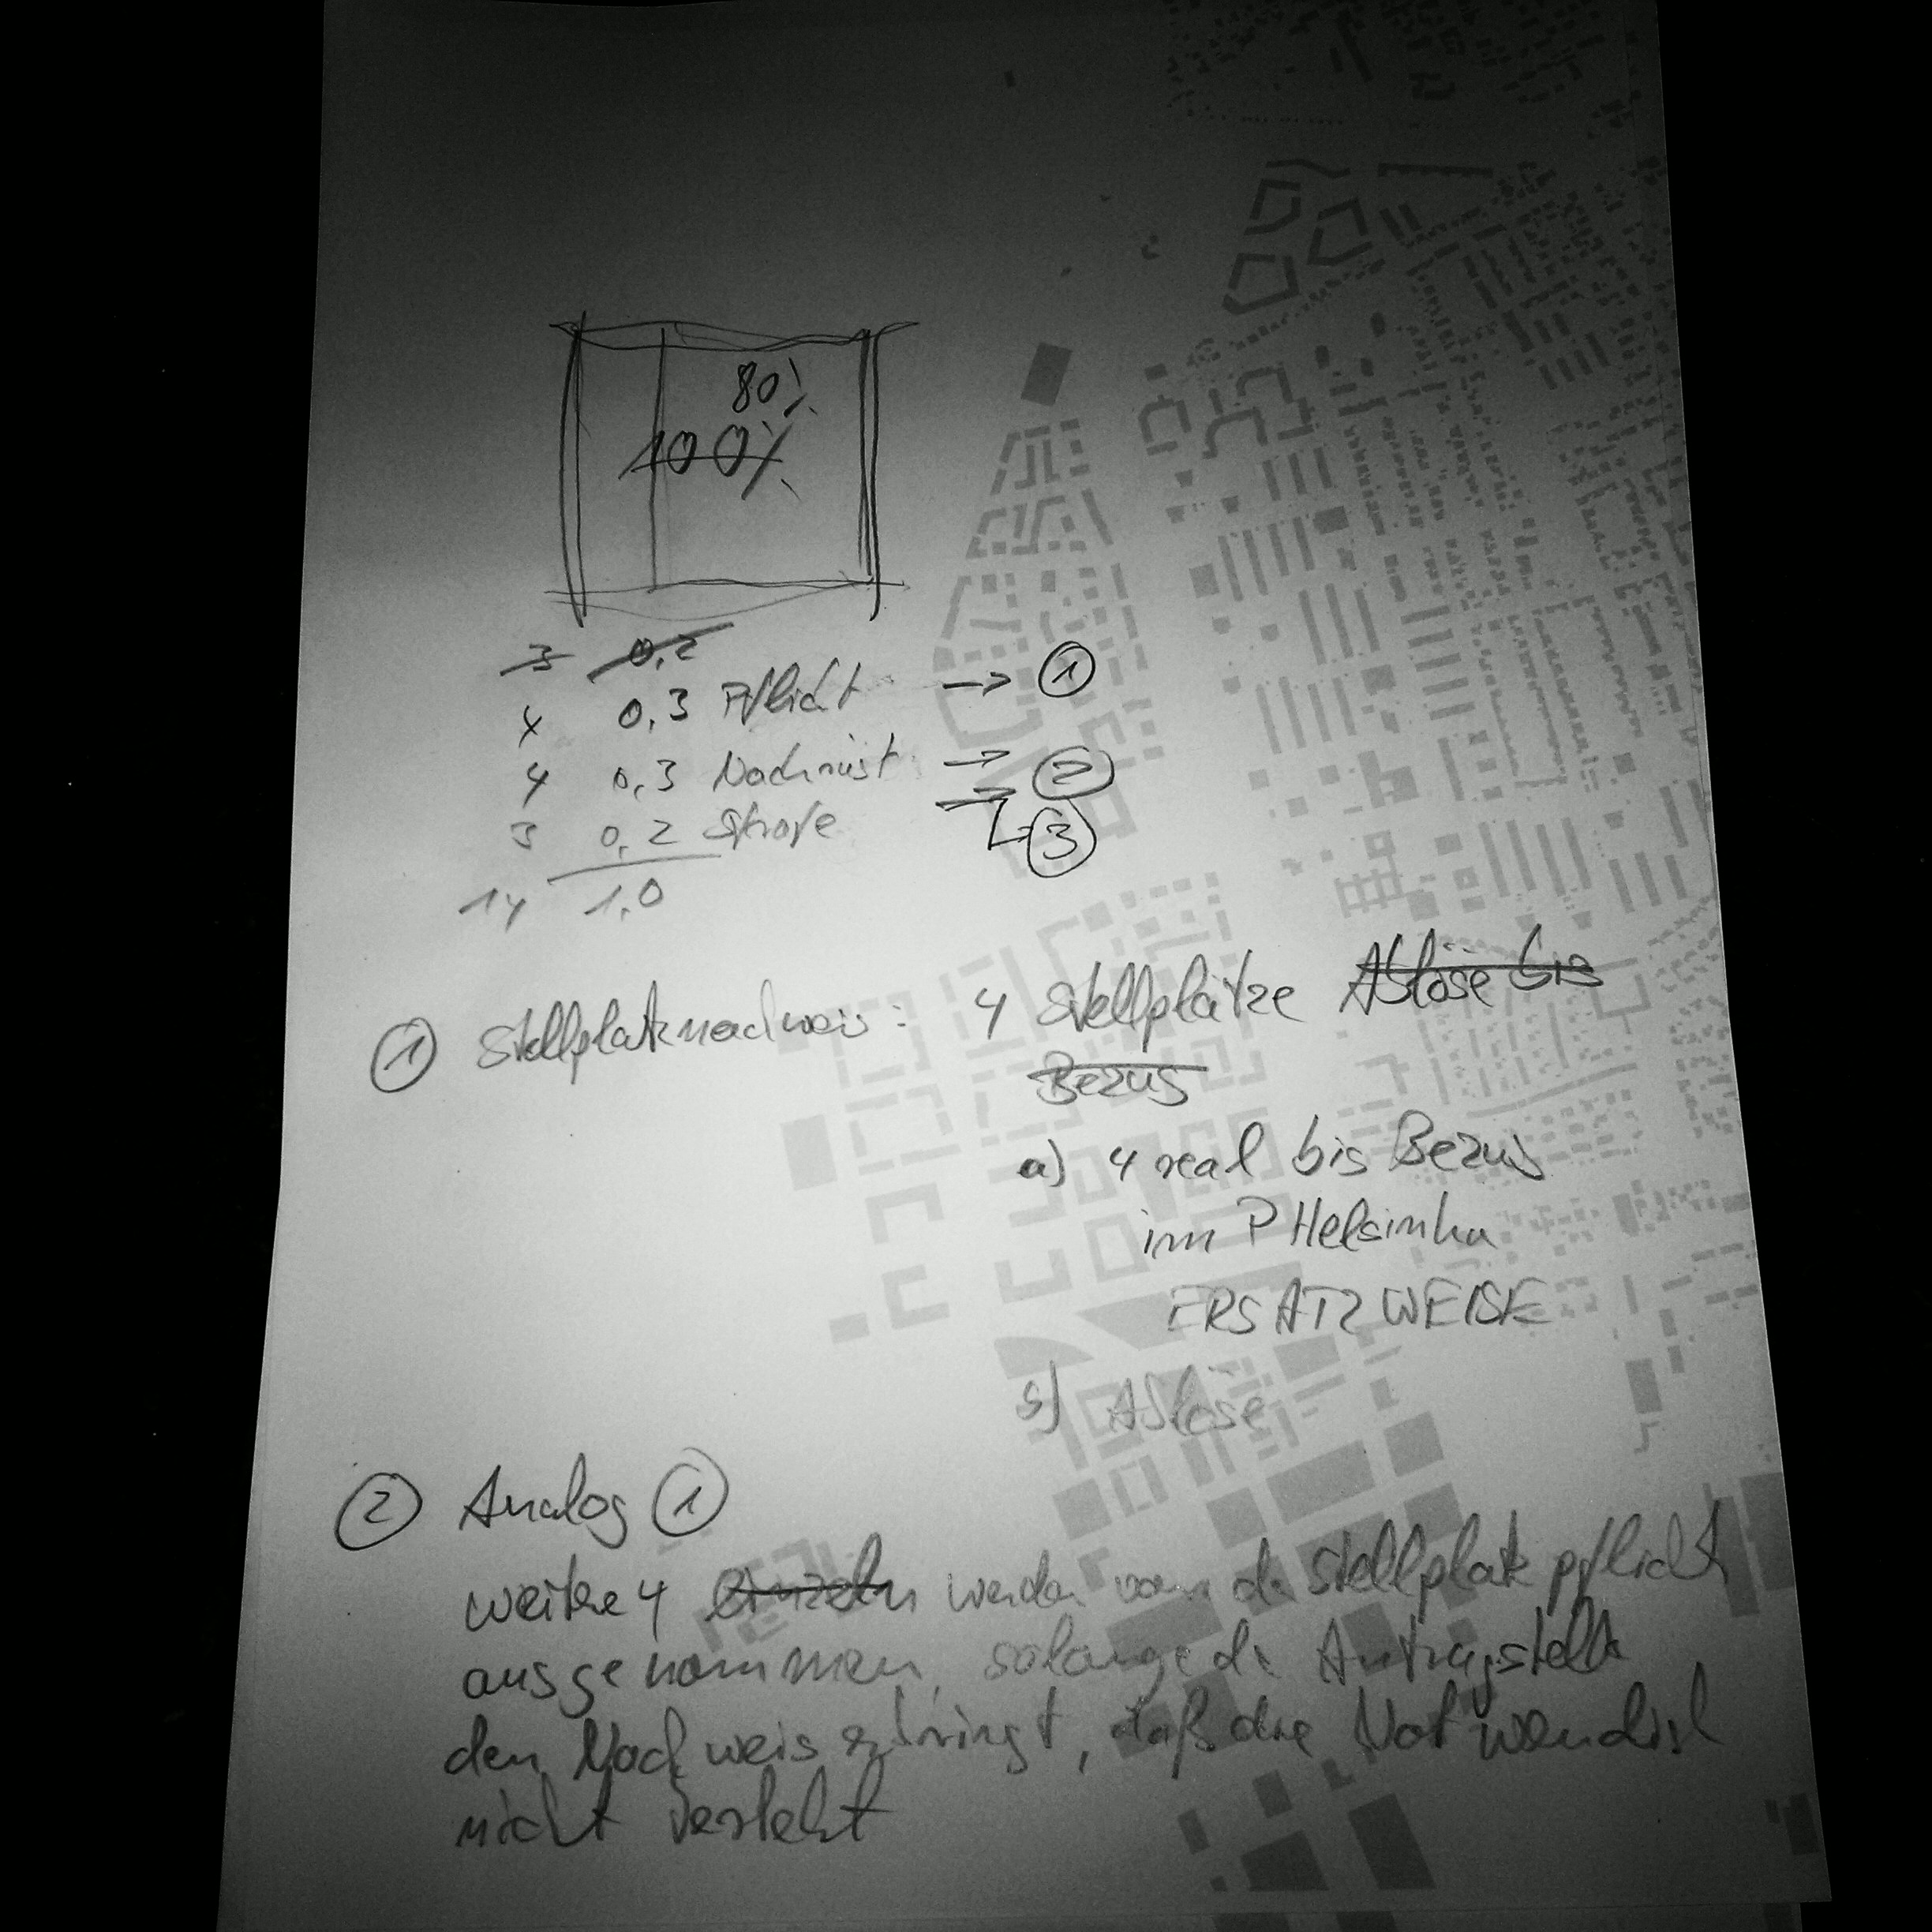 80%
100%
3 0,2
4 0,3 Pflicht → ①
4 0,3 Nachrüst → ②
3 0,2 Straße → ③
14 1,0
① Stellplatznachweis: 4 Stellplätze Ablöse bis
Bezug
a) 4 real bis Bezug
im P Helsinki
ERSATZWEISE
b) Ablöse
② Analog ①
weitere 4 einzeln werden von der Stellplatzpflicht
ausgenommen, solange der Antragstell
den Nachweis erbringt, daß die Notwendigk
nicht besteht